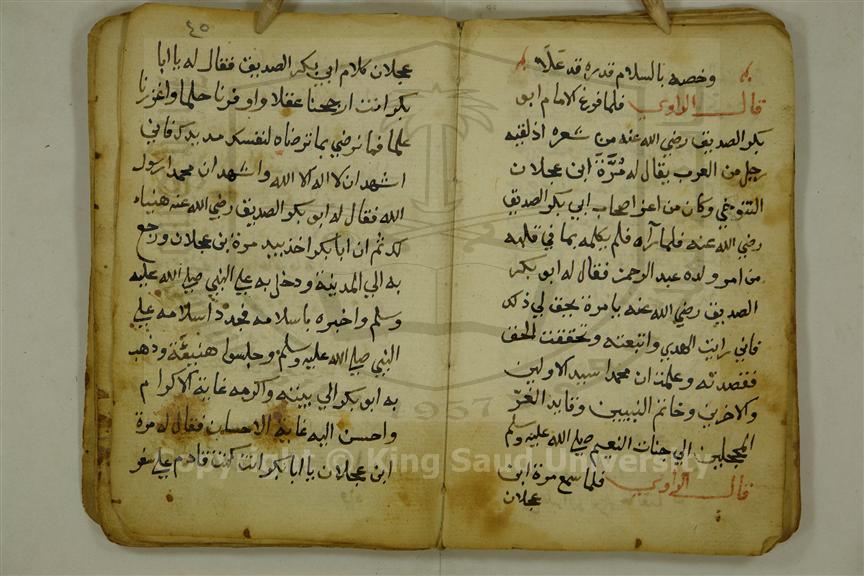 وخصه بالسلام قدره قد علاه
قال الراوي فلما فرغ الامام ابو
بكر الصديق رضي الله عنه من شعره اذ لقيه
رجل من العرب يقال له مُرَّة ابن عجلان
التنوخي وكان من اعز اصحاب ابي بكر الصديق
رضي الله عنه فلما رآه فلم يكلمه بما في قلبه
من امر ولده عبد الرحمن فقال له ابو بكر
الصديق رضي الله عنه يا مرة بحق لي ذلك
فاني رايت الهدي واتبعته وتحققت الحق
فقصدته وعلمت ان محمدا سيد الاولين
والاخرين وخاتم النبيين وقايد الغرّ
المحجلين الي جنات النعيم صلي الله عليه وسلم
قال الراوي فلما سمع مرة ابن
عجلان
٤٥
عجلان كلام ابي بكر الصديق فقال له يا ابا
بكر انت ارجحنا عقلا واوفرنا حلما واغزرنا
علما فما نرضي بما ترضاه لنفسك مد يدك فاني
اشهد ان لا اله الا الله واشهد ان محمدا رسول
الله فقال له ابو بكر الصديق رضي الله عنه هنياء
لك ثم ان ابا بكر اخذ بيد مرة بن عجلان ورجع
به الي المدينة ودخل به علي النبي صلي الله عليه
وسلم واخبره باسلامه فجدد اسلامه علي
النبي صلي الله عليه وسلم وجلسوا هنيئة وذهب
به ابو بكر الي بيته واكرمه غاية الاكرام
واحسن اليه غاية الاحسان فقال له مرة
ابن عجلان يا ابا بكر انت كنت قادم علي سفر
Copyright © King Saud University
1957